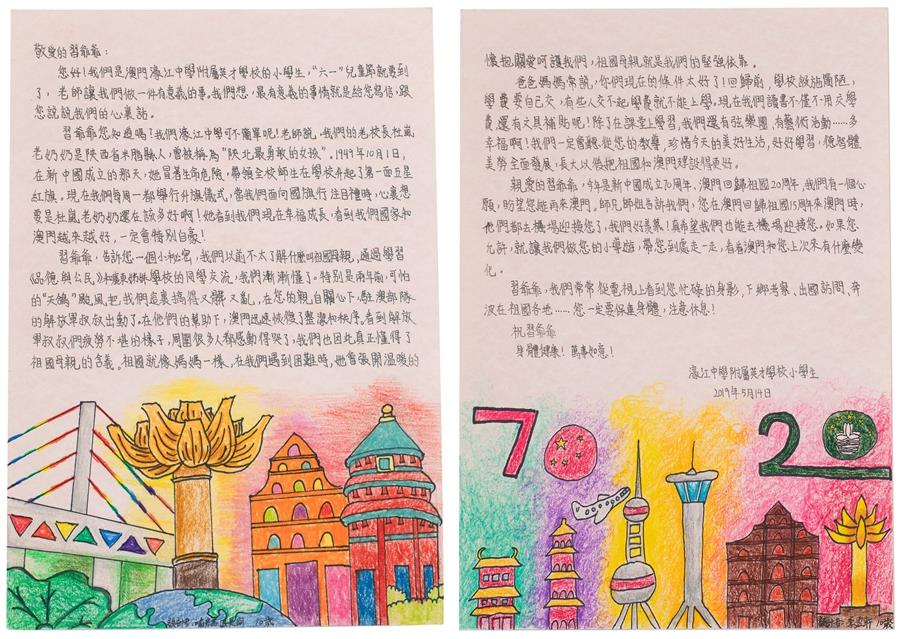 敬愛的習爺爺：
您好！我們是澳門濠江中學附屬英才學校的小學生，“六一”兒童節就要到
了，老師讓我們做一件有意義的事。我們想，最有意義的事情就是給您寫信，跟
您說說我們的心裏話。
習爺爺您知道嗎！我們濠江中學可不簡單呢！老師說，我們的老校長杜嵐
老奶奶是陝西省米脂縣人，曾被稱為“陝北最勇敢的女孩”。1949年10月1日，
在新中國成立的那天，她冒著生命危險，帶領全校師生在學校升起了第一面五星
紅旗。現在我們每周一都舉行升旗儀式，當我們面向國旗行注目禮時，心裏想
要是杜嵐老奶奶還在該多好啊！她看到我們現在幸福成長，看到我們國家和
澳門越來越好，一定會特別自豪！
習爺爺，告訴您一個小秘密，我們以前不太了解什麼叫祖國母親，通過學習
《品德與公民》學校的同學交流，我們漸漸懂了。特別是兩年前，可怕
的“天鴿”颱風把我們這裏搞得又髒又亂，在您的親自關心下，駐澳部隊
的解放軍叔叔出動了。在他們的幫助下，澳門迅速恢復了整潔和秩序。看到解放
軍叔叔們疲勞不堪的樣子，周圍很多人都感動得哭了，我們也因此真正懂得了
祖國母親的含義。祖國就像媽媽一樣，在我們遇到困難時，她會張開溫暖的
懷抱關愛呵護我們，祖國母親就是我們的堅強依靠。
爸爸媽媽常說，你們現在的條件太好了！回歸前，學校設施簡陋，
學費要自己交，有些人交不起學費就不能上學。現在我們讀書不僅不用交學
費還有文具補貼呢！除了在課堂上學習，我們還有弦樂團，有藝術活動……多
幸福啊！我們一定會聽從您的教導，珍惜今天的美好生活，好好學習，德智體
美勞全面發展，長大以後把祖國和澳門建設得更好。
親愛的習爺爺，今年是新中國成立70周年、澳門回歸祖國20周年，我們有一個心
願，盼望您能再來澳門。師兄師姐告訴我們，您在澳門回歸祖國15周年來澳門時，
他們都去機場迎接您了，我們好羨慕！真希望我們也能去機場迎接您。如果您
允許，就讓我們做您的小導遊，帶您到處走一走，看看澳門和您上次來有什麼變
化。
習爺爺，我們常常從電視上看到您忙碌的身影，下鄉考察、出國訪問、奔
波在祖國各地……您一定要保重身體，注意休息！
祝習爺爺
身體健康！萬事如意！
濠江中學附屬英才學校小學生
2019年5月14日
70
20
10歲
10歲